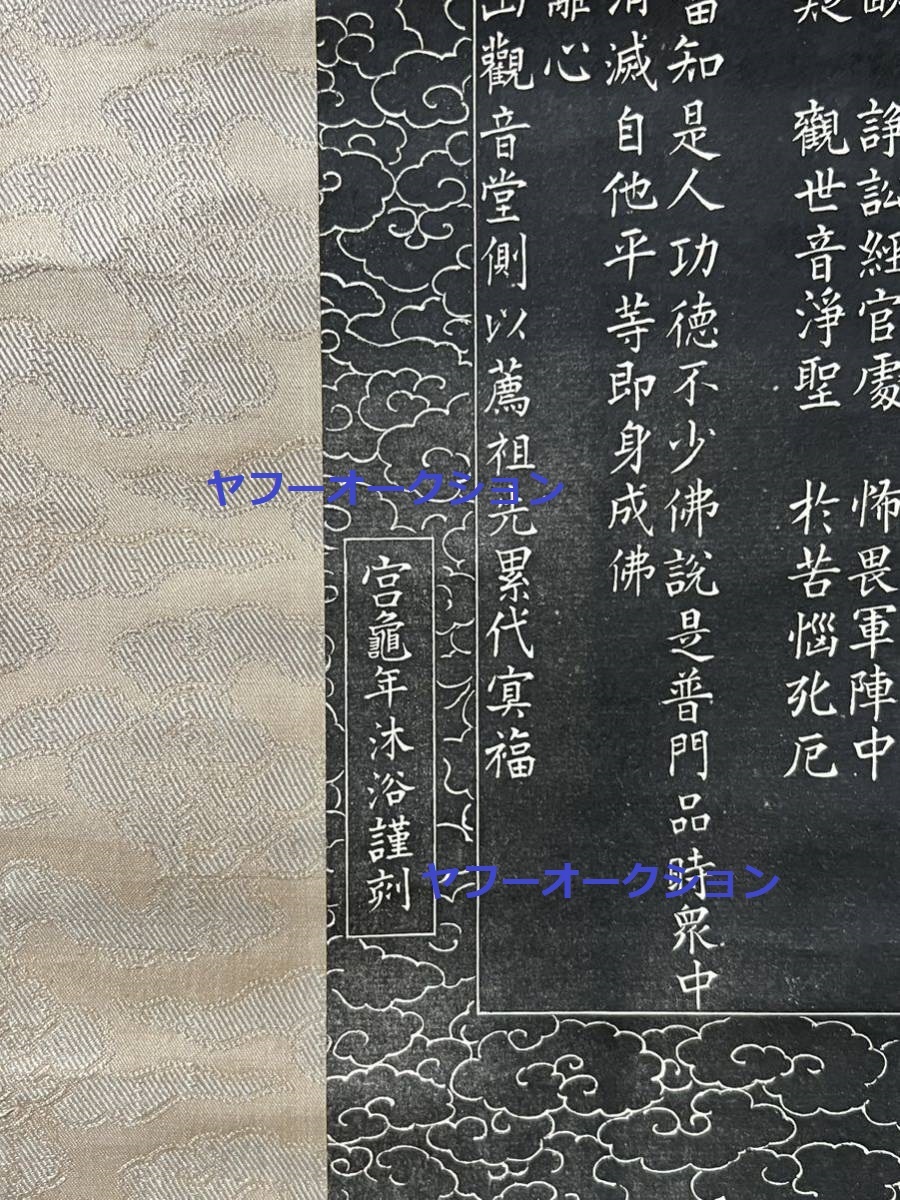 諍訟經官處 怖畏軍陣中
疑 觀世音淨聖 於苦惱死厄
當知是人功徳不少佛說是普門品時衆中
消滅自他平等即身成佛
離心
山觀音堂側以薦祖先累代冥福
宮龜年沐浴謹刻
ヤフーオークション
ヤフーオークション